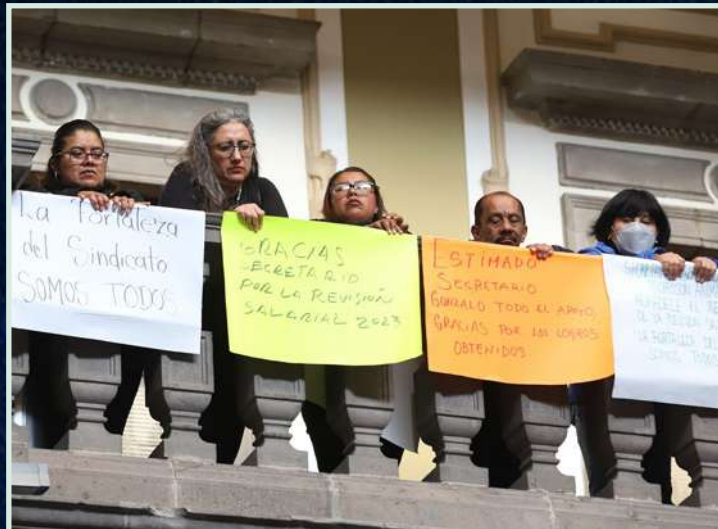 La Fortaleza
del Sindicato
SOMOS TODOS
GRACIAS
SECRETARIO
POR LA REVISIÓN
SALARIAL 2023
ESTIMADO
SECRETARIO
GONZALO TODO EL APOYO,
GRACIAS POR LOS LOGROS
OBTENIDOS
SOMOS